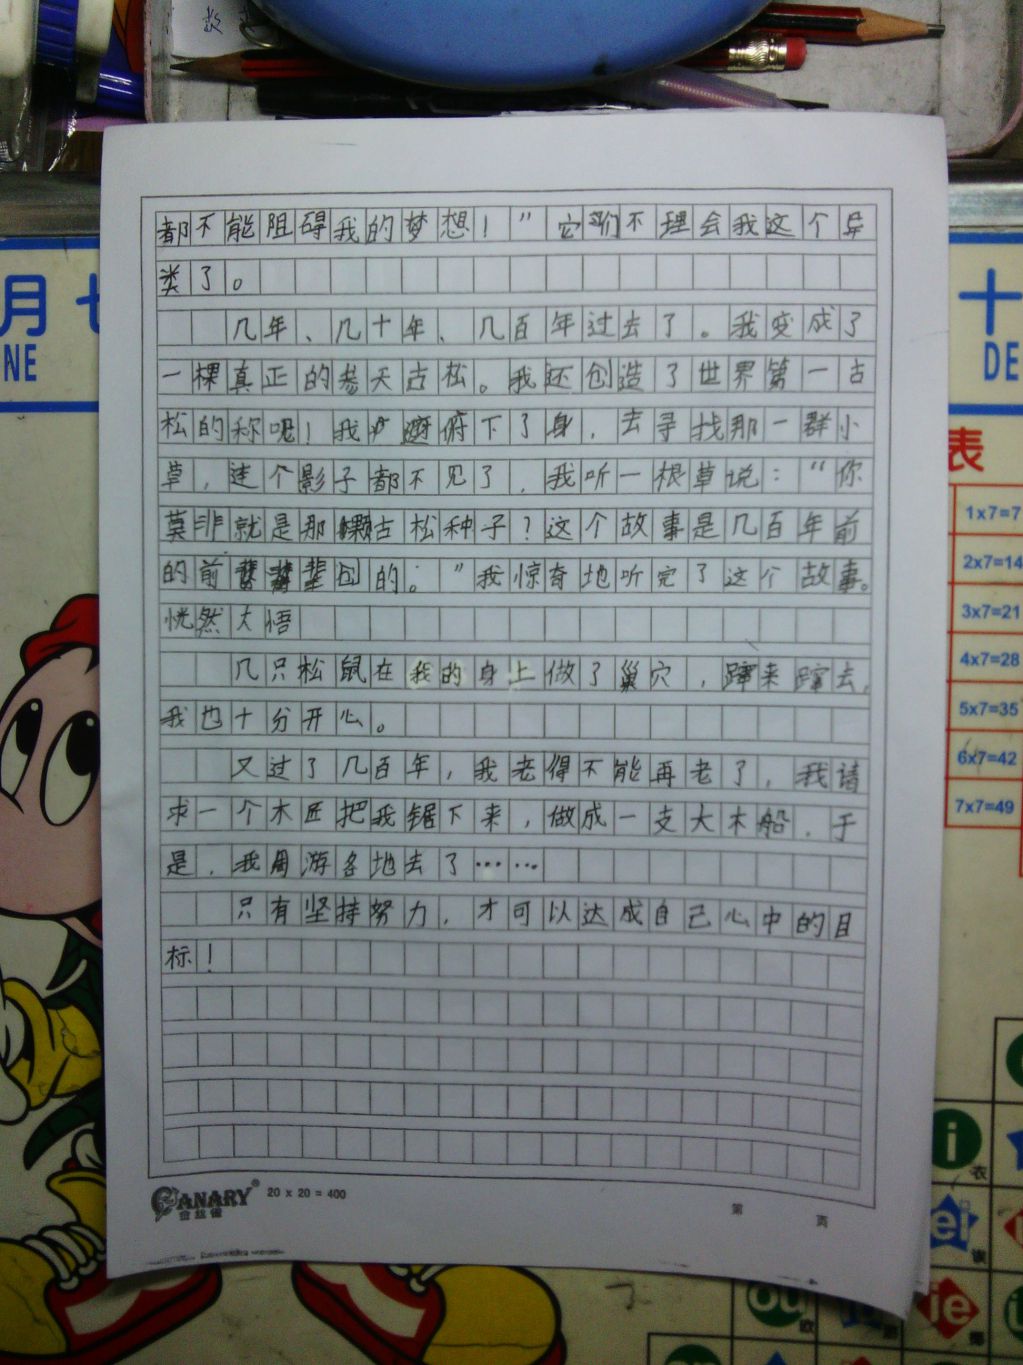 都不能阻碍我的梦想！”它们不理会我这个异
类了。
几年、几十年、几百年过去了。我变成了
一棵真正的参天古松。我还创造了世界第一古
松的称呢！我俯下了身，去寻找那一群小
草，连个影子都不见了，我听一根草说：“你
莫非就是那颗古松种子？这个故事是几百年前
的前辈的。”我惊奇地听完了这个故事。
恍然大悟
几只松鼠在我的身上做了巢穴，蹿来蹿去，
我也十分开心。
又过了几百年，我老得不能再老了，我请
求一个木匠把我锯下来，做成一支大木船，于
是，我周游各地去了……
只有坚持努力，才可以达成自己心中的目
标！
CANARY®
20 x 20 = 400
第 页
月七
NE
十
DE
表
1x7=7
2x7=14
3x7=21
4x7=28
5x7=35
6x7=42
7x7=49
i
衣
ei
ou
欧
ie